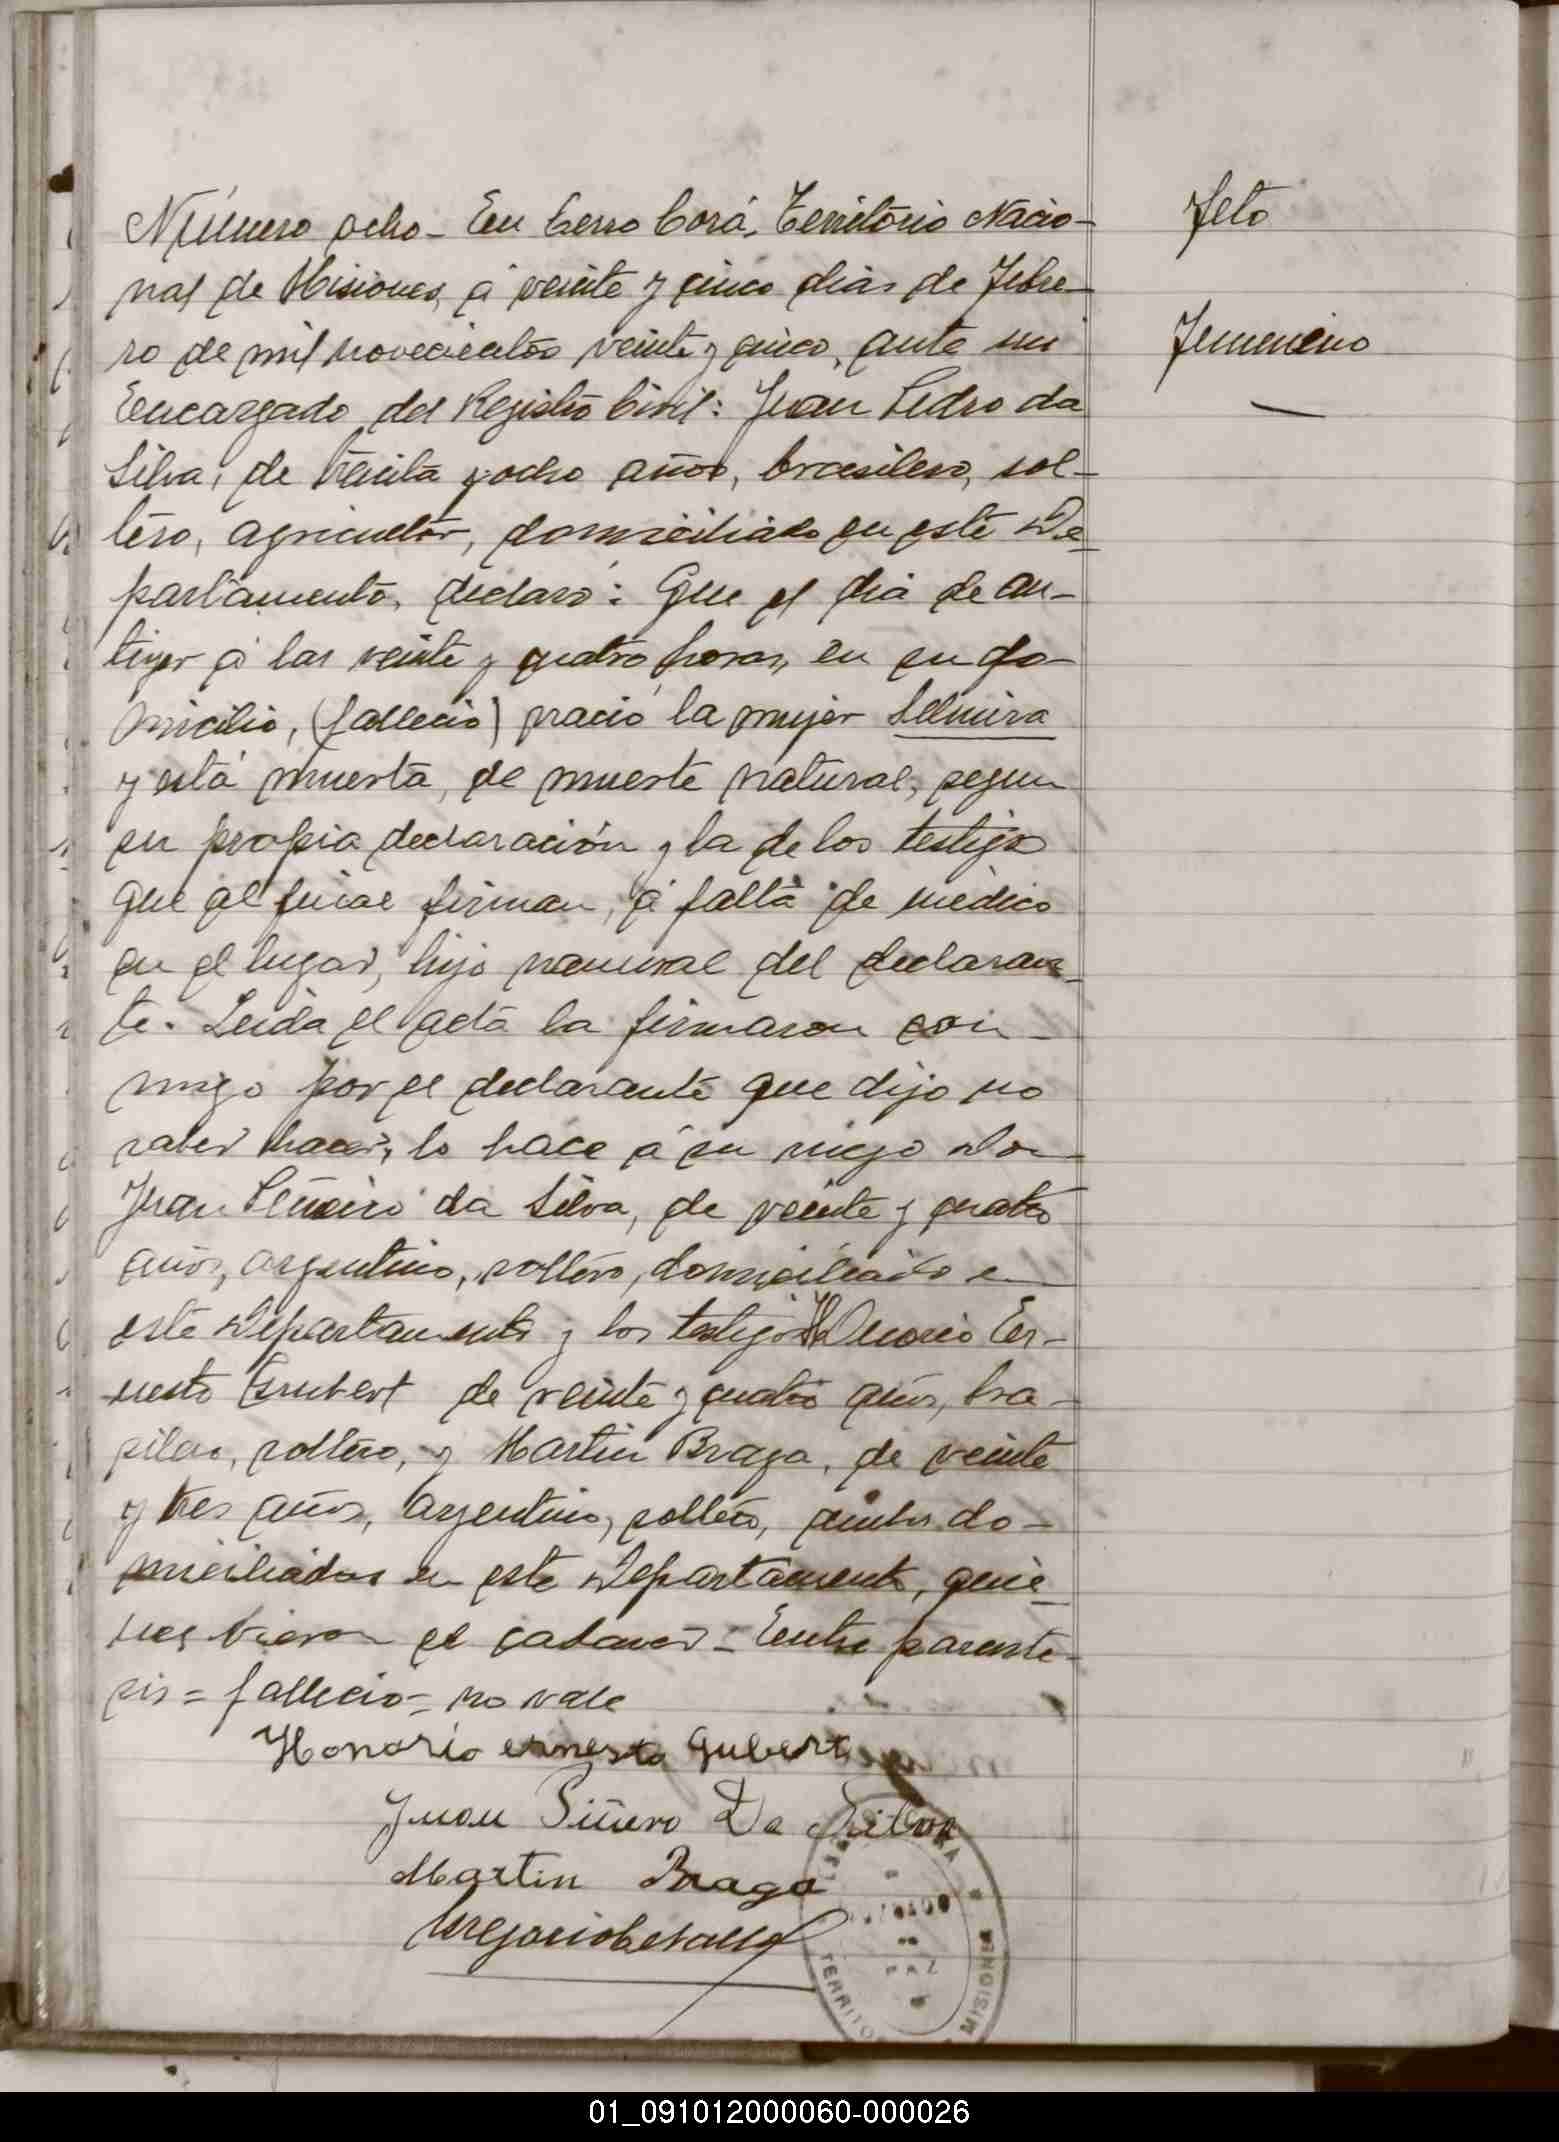 Número ocho - En Cerro Corá, Territorio Nacio-
nal de Misiones, á veinte y cinco dias de Febre-
ro de mil novecientos veinte y cinco, ante mi
Encargado del Registro Civil: Juan Pedro da
Silva, de treinta y ocho años, brasilero, sol-
tero, agricultor, domiciliado en este De-
partamento, declaró: Que el dia de an-
tiyer á las veinte y cuatro horas, en su do-
micilio, (fallecio) nació la mujer Selmira
y está muerta, de muerte natural, segun
su propia declaración y la de los testigos
que al final firman, á falta de médico
en el lugar, hijo natural del declaran-
te. Leida el acta la firmaron con-
migo por el declarante que dijo no
saber hacer, lo hace á su ruego Don
Juan Piñeiro da Silva, de veinte y cuatro
años, argentino, soltero, domiciliado en
este Departamento y los testigos Honorio Er-
nesto Grubert de veinte y cuatro años, bra-
silero, soltero, y Martin Braga, de veinte
y tres años, argentino, soltero, ambos do-
miciliados en este Departamento, quie-
nes vieron el cadaver - Entre parente-
sis = fallecio = no vale
Honorio ernesto Gubert
Juan Piñero Da Silva
Martin Braga
Feto
Femenino
TERRITO
MISIONES
01_091012000060-000026